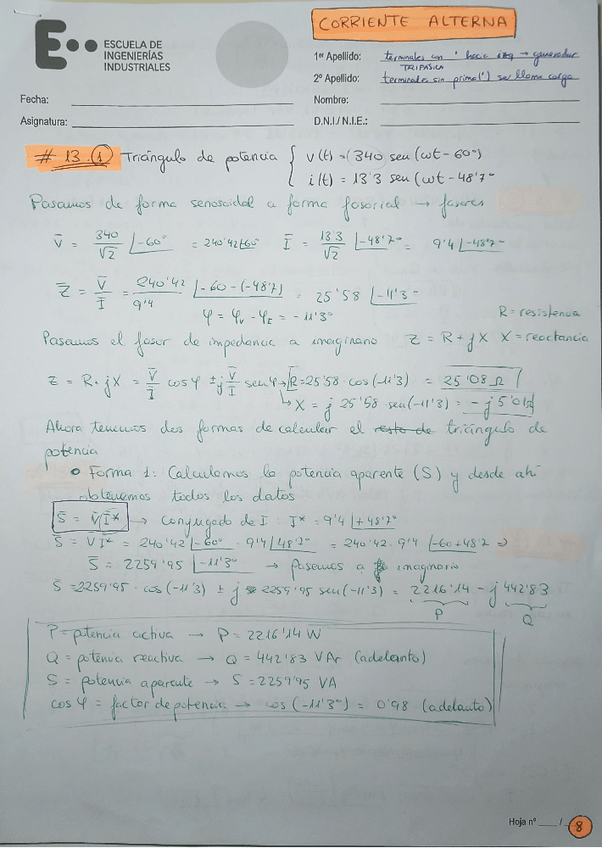 CORRIENTE ALTERNA
ESCUELA DE
INGENIERÍAS
INDUSTRIALES
1er Apellido: terminales con ' hacia izq → generador
TRIFÁSICA
2º Apellido: terminales sin prima(') se llama carga
Fecha:
Nombre:
Asignatura:
D.N.I / N.I.E.:
# 13. ① Triángulo de potencia { v(t) = (340 sen (ωt - 60º)
i(t) = 13'3 sen (ωt - 48'7º
Pasamos de forma senosoidal a forma fasorial → fasores
V̄ = 340/√2 ∠-60º = 240'42∠-60º Ī = 13'3/√2 ∠-48'7º = 9'4 ∠-48'7º
Z̄ = V̄/Ī = 240'42/9'4 ∠-60-(-48'7) = 25'58 ∠-11'3º
φ = φV - φI = -11'3º
R = resistencia
Pasamos el fasor de impedancia a imaginario Z = R + jX X = reactancia
Z = R + jX = V̄/Ī cosφ ± j V̄/Ī senφ → R = 25'58 · cos(-11'3) = 25'08 Ω
↳ X = j 25'58 · sen(-11'3) = -j 5'01 Ω
Ahora tenemos dos formas de calcular el resto de triángulo de
potencia
• Forma 1: Calculamos la potencia aparente (S) y desde ahí
obtenemos todos los datos
S̄ = V̄ Ī* → conjugado de I : I* = 9'4 ∠+48'7º
S̄ = V̄ I* = 240'42 ∠-60º · 9'4 ∠48'7º = 240'42 · 9'4 ∠-60+48'7 ⇒
S̄ = 2259'95 ∠-11'3º → pasamos a imaginario
S̄ = 2259'95 · cos(-11'3) ± j 2259'95 sen(-11'3) = 2216'14 - j 442'83
P Q
P = potencia activa → P = 2216'14 W
Q = potencia reactiva → Q = 442'83 VAr (adelanto)
S = potencia aparente → S = 2259'95 VA
cos φ = factor de potencia → cos (-11'3º) = 0'98 (adelanto)
Hoja nº ____ / 8